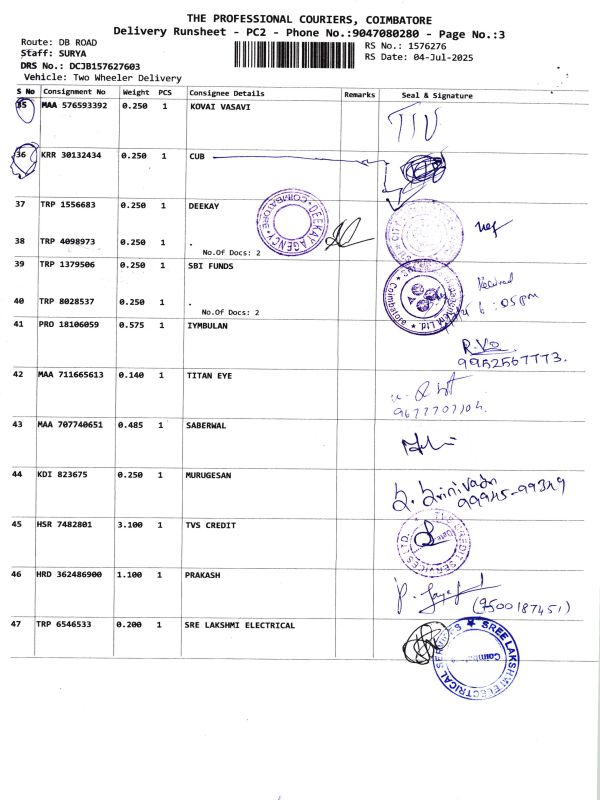 THE PROFESSIONAL COURIERS, COIMBATORE
Delivery Runsheet - PC2 - Phone No.:9047080280 - Page No.:3
Route: DB ROAD
Staff: SURYA
DRS No.: DCJB157627603
Vehicle: Two Wheeler Delivery
RS No.: 1576276
RS Date: 04-Jul-2025
S No Consignment No Weight PCS Consignee Details Remarks Seal & Signature
35 MAA 576593392 0.250 1 KOVAI VASAVI
36 KRR 30132434 0.250 1 CUB
37 TRP 1556683 0.250 1 DEEKAY
DEEKAY AGENCY
COIMBATORE
38 TRP 4098973 0.250 1 .
No.Of Docs: 2
39 TRP 1379506 0.250 1 SBI FUNDS
Received
40 TRP 8028537 0.250 1 .
6:05pm
No.Of Docs: 2
Coimbatore
41 PRO 18106059 0.575 1 IYMBULAN
9952567773.
42 MAA 711665613 0.140 1 TITAN EYE
9677707104.
43 MAA 707740651 0.485 1 SABERWAL
44 KDI 823675 0.250 1 MURUGESAN
99945-99349
45 HSR 7482801 3.100 1 TVS CREDIT
CREDIT SERVICES LTD.
46 HRD 362486900 1.100 1 PRAKASH
(9500187451)
47 TRP 6546533 0.200 1 SRE LAKSHMI ELECTRICAL
SREE LAKSHMI ELECTRICAL SERVICES